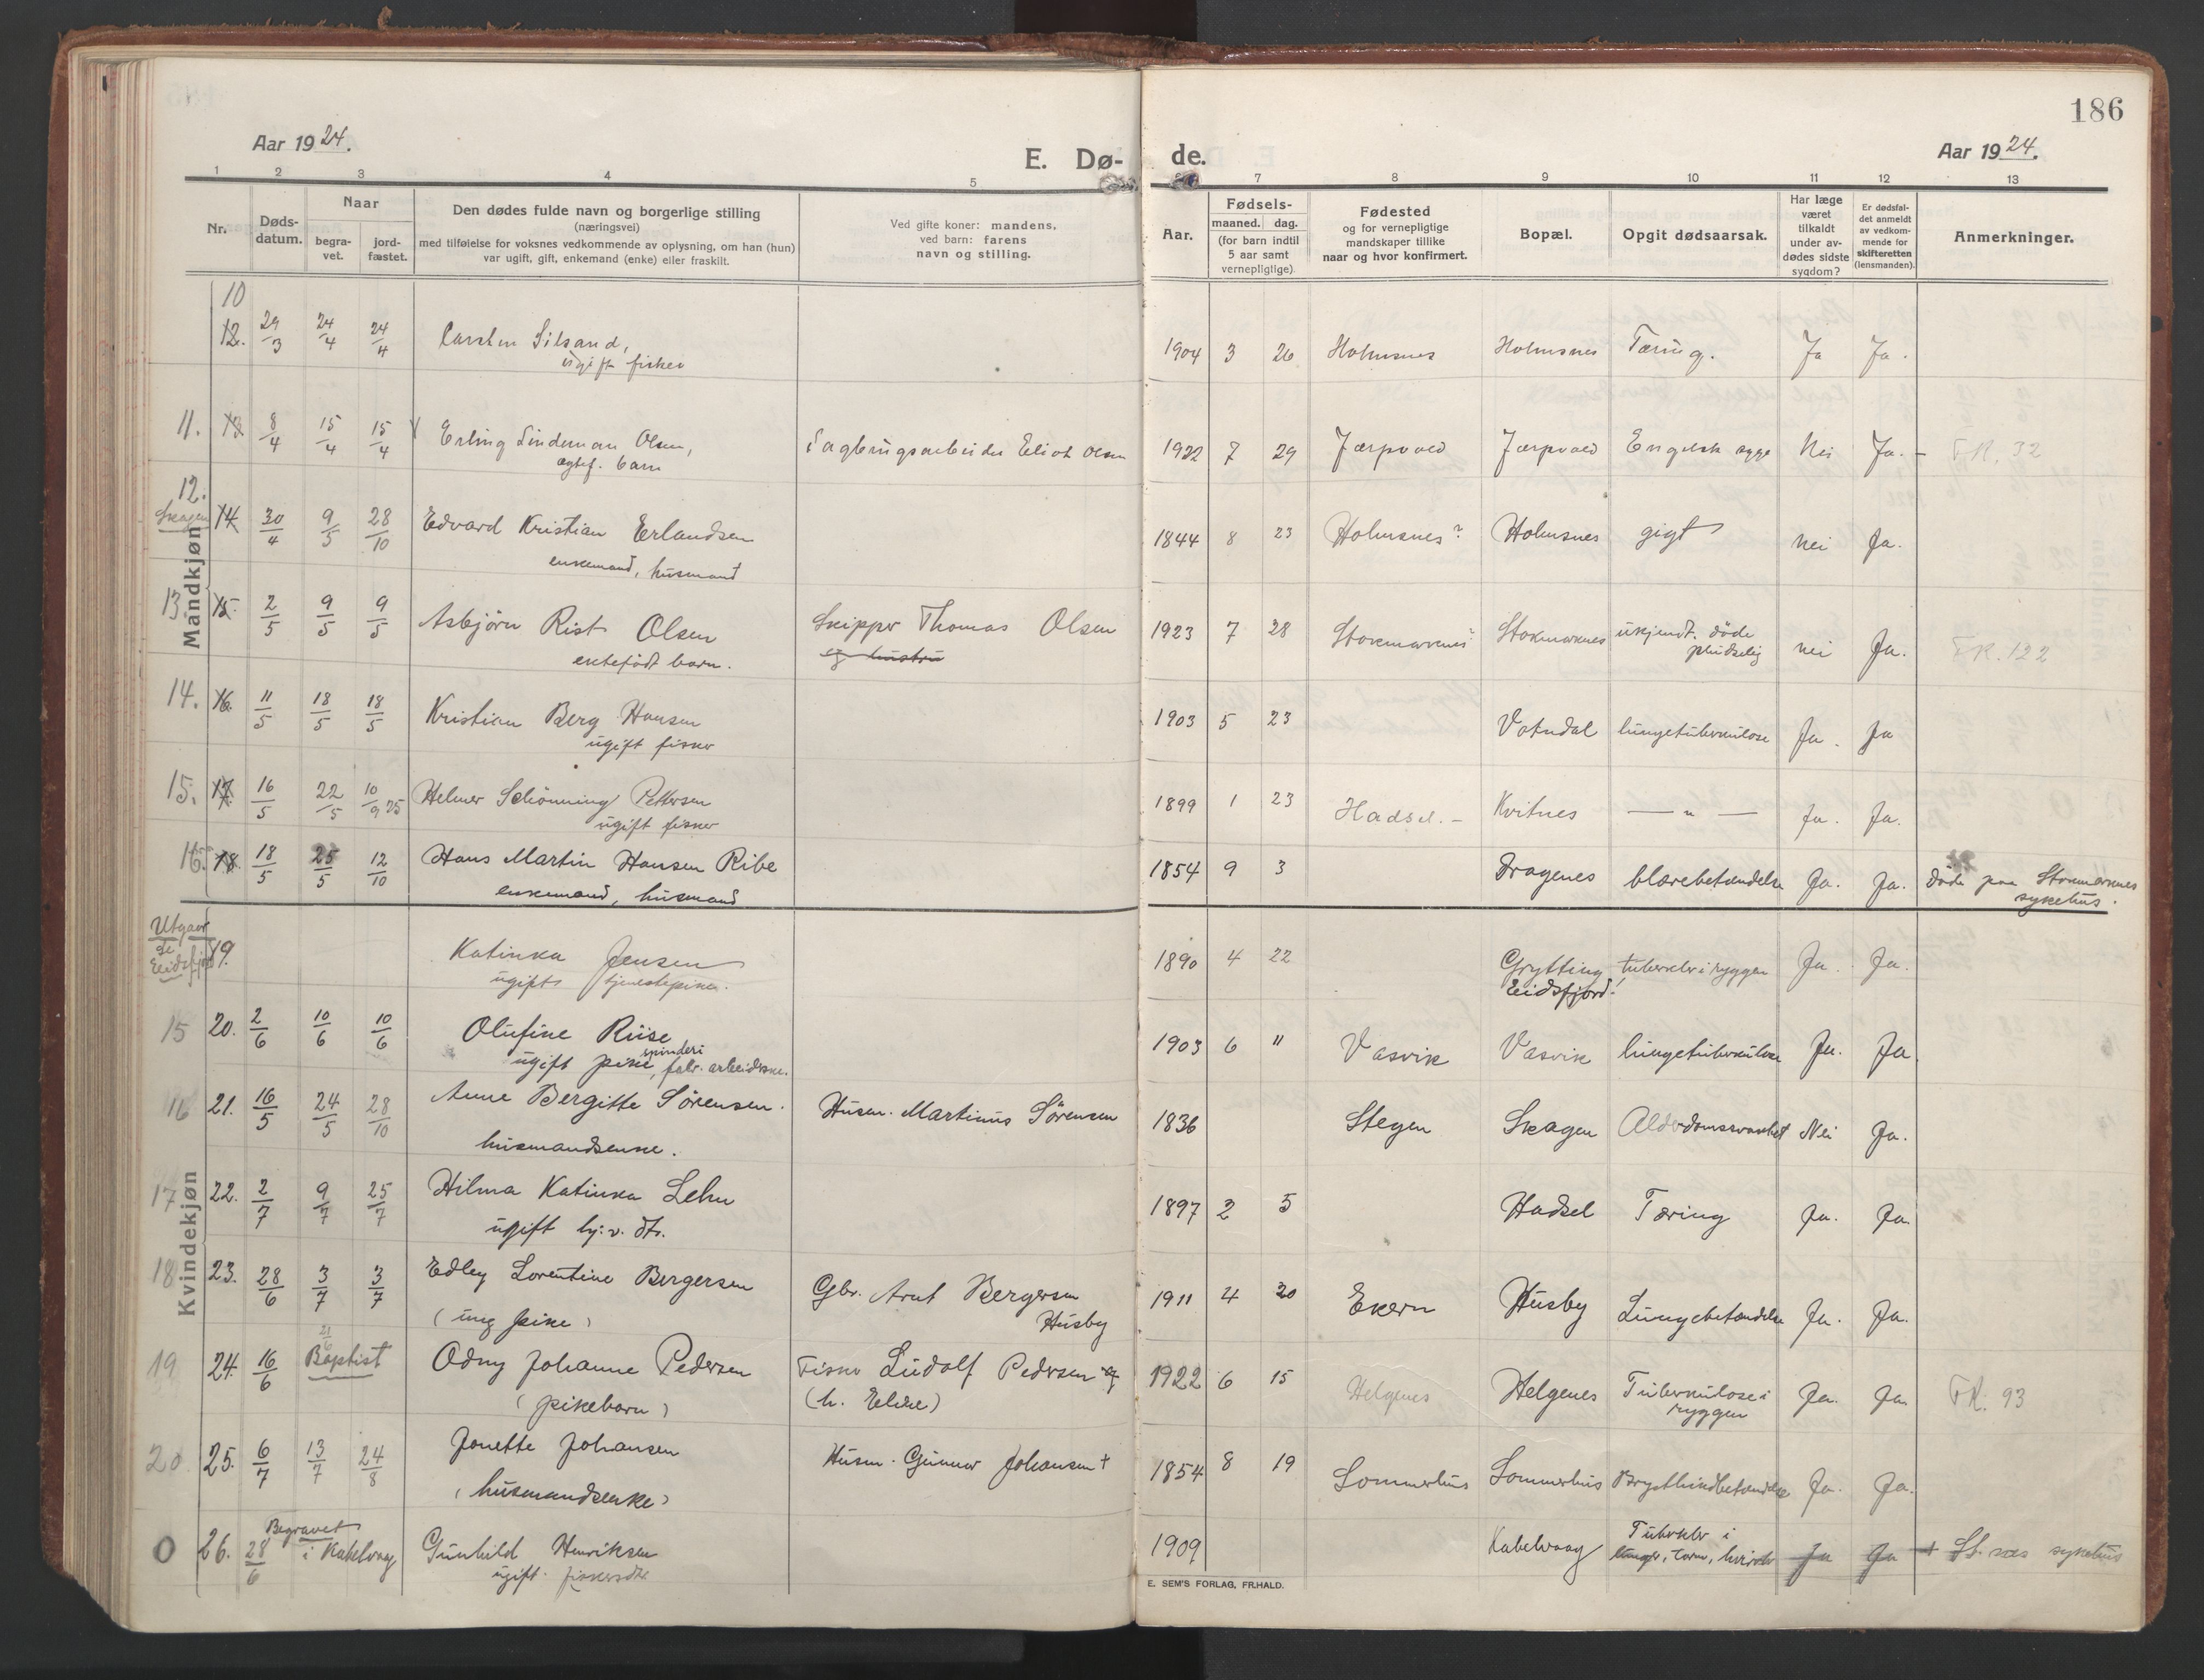 186
Aar 1924.
E. Dø-
de.
Aar 1924.
1 2 3 4 5 7 8 9 10 11 12 13
Nr.
Døds-
datum.
Naar
begra-
vet.
jord-
fæstet.
Den dødes fulde navn og borgerlige stilling
(næringsvei)
med tilføielse for voksnes vedkommende av oplysning, om han (hun)
var ugift, gift, enkemand (enke) eller fraskilt.
Ved gifte koner: mandens,
ved barn: farens
navn og stilling.
Aar.
Fødsels-
maaned. dag.
(for barn indtil
5 aar samt
vernepligtige).
Fødested
og for vernepligtige
mandskaper tillike
naar og hvor konfirmert.
Bopæl.
Opgit dødsaarsak.
Har læge
været
tilkaldt
under av-
dødes sidste
sygdom?
Er dødsfal-
det anmeldt
av vedkom-
mende for
skifteretten
(lensmanden).
Anmerkninger.
Mandkjøn
10
12. 29/3 24/4 24/4 Carsten Silsand, 1904 3 26 Holmsnes Holmsnes Tæring. Ja Ja.
ugift fisker
11. 13 8/4 15/4 15/4 Erling Lindeman Olsen, Sagbrugsarbeider Eliot Olsen 1922 7 29 Jærpvold Jærpvold Engelsk syge Nei Ja. – FR. 32
ægtef. barn
12.
Skagen 14 30/4 9/5 28/10 Edvard Kristian Erlandsen 1844 8 23 Holmsnes? Holmsnes gigt nei Ja.
enkemand, husmand
13. 15. 2/5 9/5 9/5 Asbjörn Rist Olsen Skipper Thomas Olsen 1923 7 28 Stokmarknes? Stokmarknes ukjendt. döde nei Ja. FR. 122
ektefödt barn. og hustru pludselig
14. 16. 11/5 18/5 18/5 Kristian Berg Hansen 1903 5 23 Vatndal lungetuberkulose Ja. Ja
ugift fisker
15. 17. 16/5 22/5 10/9 25 Helmer Schönning Pettersen 1899 1 23 Hadsel. – Kvitnes — " — Ja. Ja.
ugift fisker
16. 18. 18/5 25/5 12/10 Hans Martin Hansen Ribe 1854 9 3 Dragenes blærebetændelse Ja. Ja. döde paa Stokmarknes
enkemand, husmand sykehus.
Kvindekjøn
Utgaar
se
Eidsfjord 19. Katinka Jensen 1890 4 22 Grytting tuberkler i ryggen Ja. Ja.
ugift tjenestepike. Eidsfjord!
15 20. 2/6 10/6 10/6 Olufine Riise 1903 6 11 Vasvik Vasvik lungetuberkulose Ja. Ja.
spinderi
ugift pike, fabr. arbeiderske.
16 21. 16/5 24/5 28/10 Anne Bergitte Sörensen. Husm. Martinus Sörensen 1836 Stegen Skagen Alderdomssvakhet Nei Ja.
husmandsenke.
17 22. 2/7 9/7 25/7 Hilma Katinka Lehn 1897 2 5 Hadsel Tæring Ja. Ja.
ugift hj. v. dtr.
18 23. 28/6 3/7 3/7 Edley Lorentine Bergersen Gbr. Arnt Bergersen 1911 4 20 Ekern Husby Lungebetændelse Ja. Ja.
(ung pike) Husby
21/6
19 24. 16/6 Baptist Odny Johanne Pedersen Fisker Ludolf Pedersen og 1922 6 15 Helgenes Helgenes Tuberkulose i Ja. Ja. FR. 93
(pikebarn) (h. Elde) ryggen
20 25. 6/7 13/7 24/8 Jonette Johansen Husm. Gunnar Johansen † 1854 8 19 Sommerhus Sommerhus Brysthindbetændelse Ja. Ja.
(husmandsenke)
0 26. 28/6 Begravet
i Kabelvaag Gunhild Henriksen 1909 Kabelvaag Tuberkler i
ugift. fiskersdtr. lunger, tarm, Ja Ja St.nes sykehus
E. SEM'S FORLAG, FR.HALD.